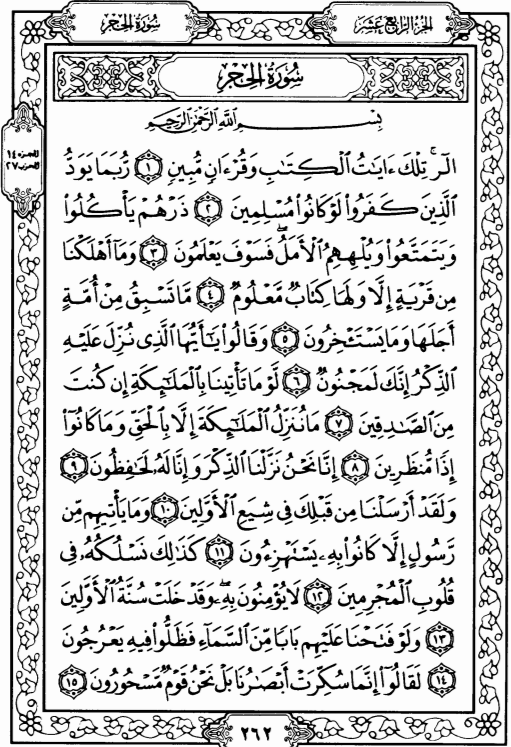 الجزء الرابع عشر
سورة الحجر
سورة الحجر
بِسْمِ اللَّهِ الرَّحْمَٰنِ الرَّحِيمِ
الجزء ١٤
الحزب ٢٧
الٓرۚ تِلْكَ ءَايَٰتُ ٱلْكِتَٰبِ وَقُرْءَانٍ مُّبِينٍ ١ رُّبَمَا يَوَدُّ
ٱلَّذِينَ كَفَرُوا۟ لَوْ كَانُوا۟ مُسْلِمِينَ ٢ ذَرْهُمْ يَأْكُلُوا۟
وَيَتَمَتَّعُوا۟ وَيُلْهِهِمُ ٱلْأَمَلُۖ فَسَوْفَ يَعْلَمُونَ ٣ وَمَآ أَهْلَكْنَا
مِن قَرْيَةٍ إِلَّا وَلَهَا كِتَابٌ مَّعْلُومٌ ٤ مَّا تَسْبِقُ مِنْ أُمَّةٍ
أَجَلَهَا وَمَا يَسْتَـْٔخِرُونَ ٥ وَقَالُوا۟ يَٰٓأَيُّهَا ٱلَّذِى نُزِّلَ عَلَيْهِ
ٱلذِّكْرُ إِنَّكَ لَمَجْنُونٌ ٦ لَّوْ مَا تَأْتِينَا بِٱلْمَلَٰٓئِكَةِ إِن كُنتَ
مِنَ ٱلصَّٰدِقِينَ ٧ مَا نُنَزِّلُ ٱلْمَلَٰٓئِكَةَ إِلَّا بِٱلْحَقِّ وَمَا كَانُوٓا۟
إِذًا مُّنظَرِينَ ٨ إِنَّا نَحْنُ نَزَّلْنَا ٱلذِّكْرَ وَإِنَّا لَهُۥ لَحَٰفِظُونَ ٩
وَلَقَدْ أَرْسَلْنَا مِن قَبْلِكَ فِى شِيَعِ ٱلْأَوَّلِينَ ١٠ وَمَا يَأْتِيهِم مِّن
رَّسُولٍ إِلَّا كَانُوا۟ بِهِۦ يَسْتَهْزِءُونَ ١١ كَذَٰلِكَ نَسْلُكُهُۥ فِى
قُلُوبِ ٱلْمُجْرِمِينَ ١٢ لَا يُؤْمِنُونَ بِهِۦۖ وَقَدْ خَلَتْ سُنَّةُ ٱلْأَوَّلِينَ
١٣ وَلَوْ فَتَحْنَا عَلَيْهِم بَابًا مِّنَ ٱلسَّمَآءِ فَظَلُّوا۟ فِيهِ يَعْرُجُونَ
١٤ لَقَالُوٓا۟ إِنَّمَا سُكِّرَتْ أَبْصَٰرُنَا بَلْ نَحْنُ قَوْمٌ مَّسْحُورُونَ ١٥
٢٦٢